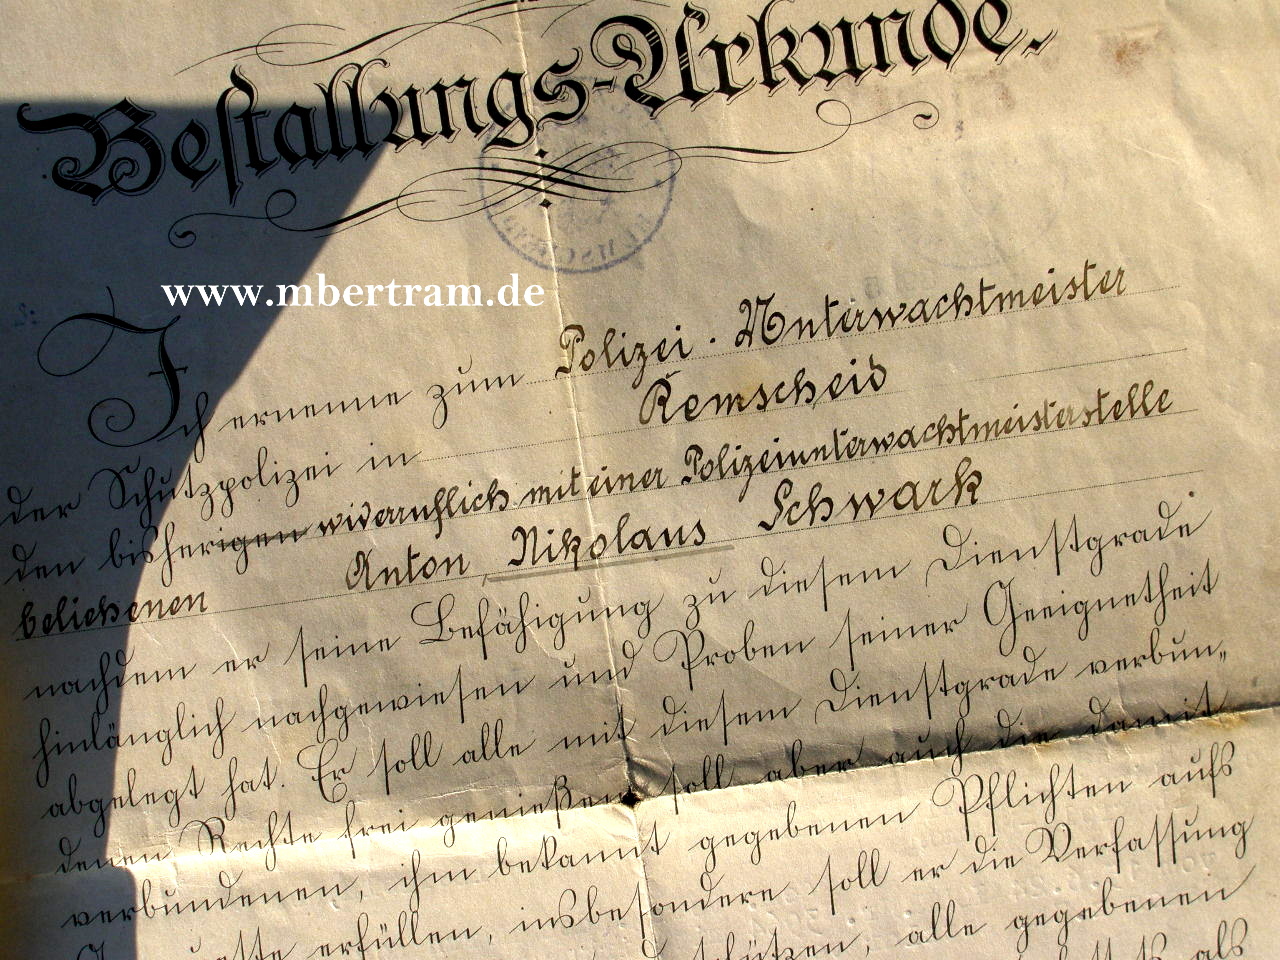 Bestallungs-Urkunde.
www.mbertram.de
Ich ernenne zum Polizei-Unterwachtmeister
der Schutzpolizei in Remscheid
den bisherigen widerruflich mit einer Polizeiunterwachtmeisterstelle
beliehenen Anton Nikolaus Schwark
nachdem er seine Befähigung zu diesem Dienstgrade
hinlänglich nachgewiesen und Proben seiner Geeignetheit
abgelegt hat. Er soll alle mit diesem Dienstgrade verbun-
denen Rechte frei genießen, soll aber auch die damit
verbundenen, ihm bekannt gegebenen Pflichten aufs
erfüllen, insbesondere soll er die Verfassung
schützen, alle gegebenen
als